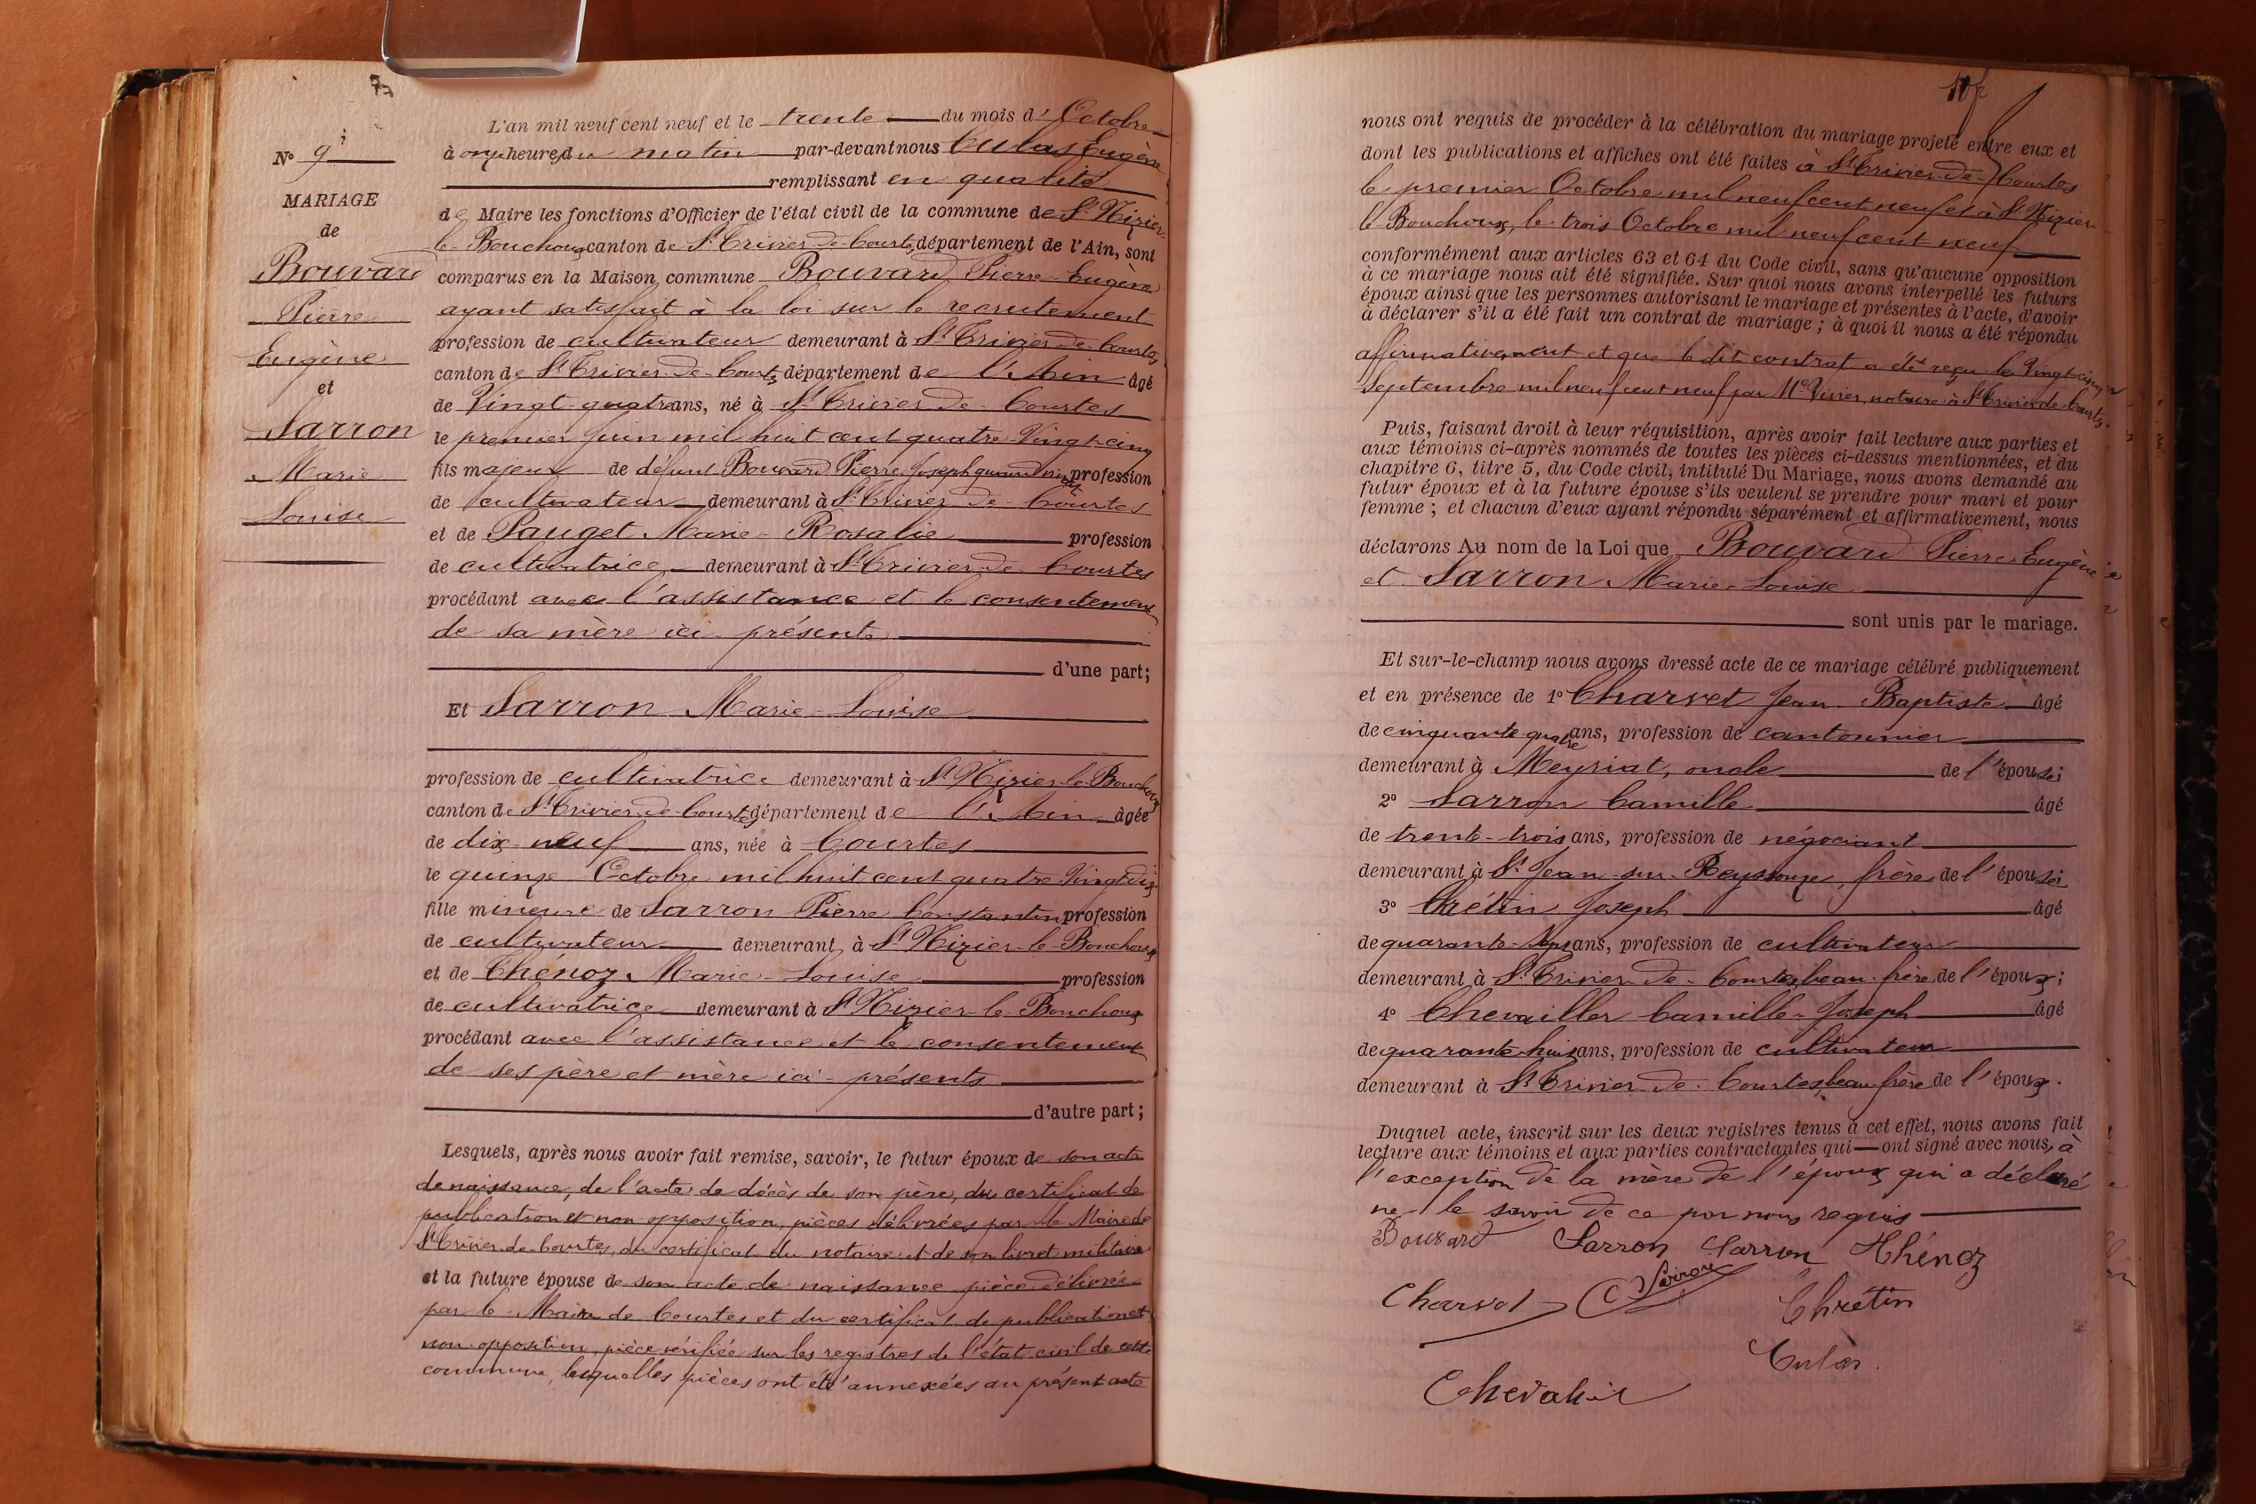 L'an mil neuf cent neuf et le trente du mois d'Octobre
à onze heures du matin par-devant nous Culas Eugène
remplissant en qualité
N° 9
MARIAGE
de
Bouvard
Pierre
Eugène
et
Sarron
Marie
Louise
de Maire les fonctions d'Officier de l'état civil de la commune de St Nizier
le Bouchoux canton de St Trivier de Courtes, département de l'Ain, sont
comparus en la Maison commune Bouvard Pierre Eugène
ayant satisfait à la loi sur le recrutement
profession de cultivateur demeurant à St Trivier de Courtes
canton de St Trivier de Courtes département de l'Ain âgé
de Vingt-quatre ans, né à St Trivier de Courtes
le premier Juin mil huit cent quatre Vingt-cinq
fils majeur de défunt Bouvard Pierre Joseph quand vivait profession
de cultivateur demeurant à St Trivier de Courtes
et de Pauget Marie Rosalie profession
de cultivatrice demeurant à St Trivier de Courtes
procédant avec l'assistance et le consentement
de sa mère ici présente
d'une part;
Et Sarron Marie-Louise
profession de cultivatrice demeurant à St Nizier-le-Bouchoux
canton de St Trivier de Courtes département de l'Ain âgée
de dix-neuf ans, née à Courtes
le quinze Octobre mil huit cent quatre Vingt dix
fille mineure de Sarron Pierre Constantin profession
de cultivateur demeurant à St Nizier-le-Bouchoux
et de Thénoz Marie-Louise profession
de cultivatrice demeurant à St Nizier-le-Bouchoux
procédant avec l'assistance et le consentement
de ses père et mère ici présents
d'autre part;
Lesquels, après nous avoir fait remise, savoir, le futur époux de son acte
de naissance, de l'acte de décès de son père, du certificat de
publication et non opposition, pièces délivrées par le Maire de
St Trivier de Courtes, du certificat du notaire et de son livret militaire
et la future épouse de son acte de naissance pièce délivrée
par le Maire de Courtes et du certificat de publication et
non opposition, pièce vérifiée sur les registres de l'état civil de cette
commune, lesquelles pièces ont été annexées au présent acte
nous ont requis de procéder à la célébration du mariage projeté entre eux et
dont les publications et affiches ont été faites à St Trivier-de-Courtes
le premier Octobre mil neuf cent neuf et à St Nizier
le Bouchoux, le trois Octobre mil neuf cent neuf
conformément aux articles 63 et 64 du Code civil, sans qu'aucune opposition
à ce mariage nous ait été signifiée. Sur quoi nous avons interpellé les futurs
époux ainsi que les personnes autorisant le mariage et présentes à l'acte, d'avoir
à déclarer s'il a été fait un contrat de mariage; à quoi il nous a été répondu
affirmativement et que le dit contrat a été reçu le Vingt-cinq
Septembre mil neuf cent neuf par Me Vivier, notaire à St Trivier de Courtes.
Puis, faisant droit à leur réquisition, après avoir fait lecture aux parties et
aux témoins ci-après nommés de toutes les pièces ci-dessus mentionnées, et du
chapitre 6, titre 5, du Code civil, intitulé Du Mariage, nous avons demandé au
futur époux et à la future épouse s'ils veulent se prendre pour mari et pour
femme; et chacun d'eux ayant répondu séparément et affirmativement, nous
déclarons Au nom de la Loi que Bouvard Pierre Eugène
et Sarron Marie-Louise
sont unis par le mariage.
Et sur-le-champ nous avons dressé acte de ce mariage célébré publiquement
et en présence de 1° Charvet Jean Baptiste âgé
de cinquante quatre ans, profession de cantonnier
demeurant à Meyriat, oncle de l'épouse;
2° Sarron Camille âgé
de trente-trois ans, profession de négociant
demeurant à St Jean-sur-Reyssouze, frère de l'épouse;
3° Chrétin Joseph âgé
de quarante ans, profession de cultivateur
demeurant à St Trivier-de-Courtes, beau-frère de l'époux;
4° Chevailler Camille-Joseph âgé
de quarante-huit ans, profession de cultivateur
demeurant à St Trivier-de-Courtes, beau-frère de l'époux.
Duquel acte, inscrit sur les deux registres tenus à cet effet, nous avons fait
lecture aux témoins et aux parties contractantes qui ont signé avec nous, à
l'exception de la mère de l'époux qui a déclaré
ne le savoir de ce par nous requis
Bouvard Sarron Sarron Thénoz
Charvet C Sarron Chrétin
Culas
Chevalier